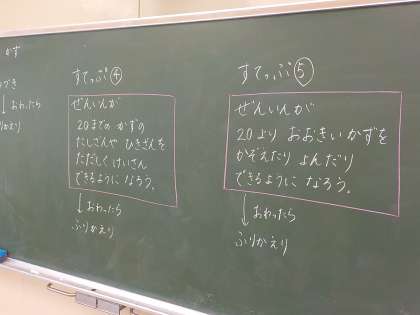 かず
でき
↓おわったら
りかえり
すてっぷ④
ぜんいんが
20までの かずの
たしざんや ひきざんを
ただしく けいさん
できるように なろう。
↓おわったら
ふりかえり
すてっぷ⑤
ぜんいんが
20より おおきい かずを
かぞえたり よんだり
できるように なろう。
↓おわったら
ふりかえり